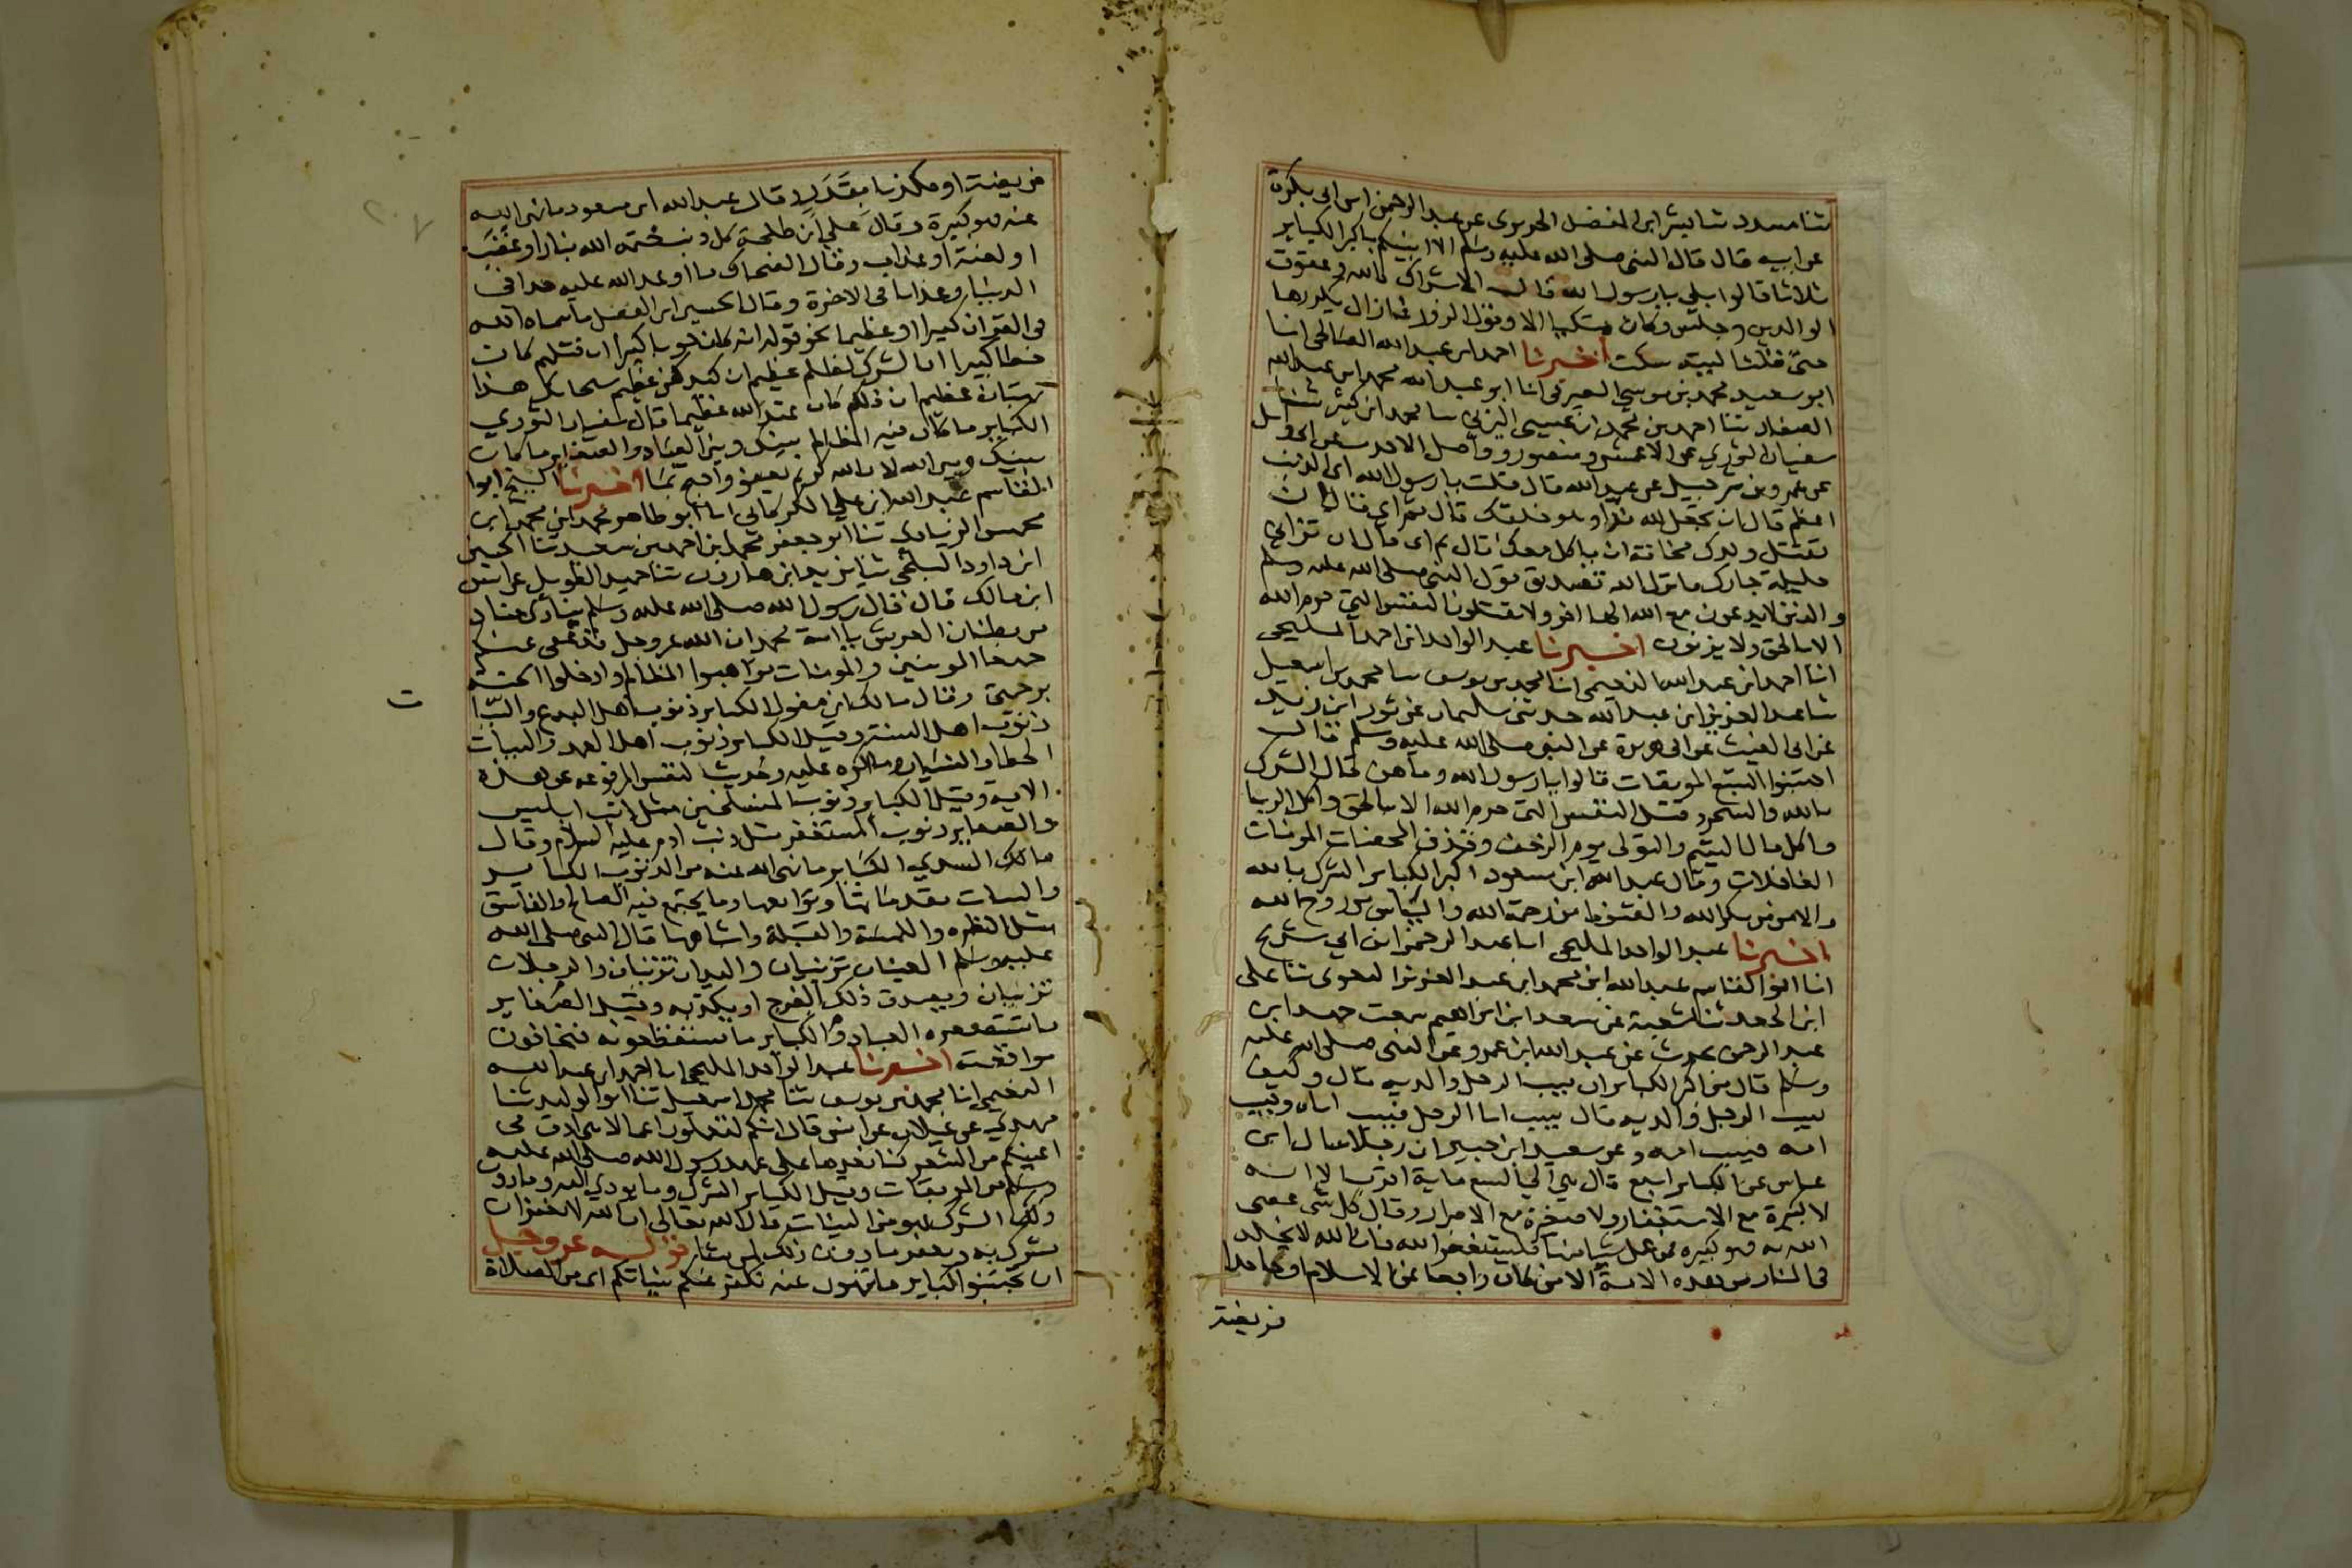 ثنا مسدد ثنا بشر ابن المفضل الجريري عن عبد الرحمن ابن ابي بكرة
عن ابيه قال قال النبي صلى الله عليه وسلم الا انبئكم باكبر الكباير
ثلاثا قالوا بلى يا رسول الله قال الاشراك بالله وعقوق
الوالدين وجلس وكان متكيا الا وقول الزور فما زال يكررها
حتى قلنا ليته سكت اخبرنا احمد ابن عبد الله الصالحي انا
ابو سعيد محمد بن موسى الصيرفي انا ابو عبد الله محمد ابن عبد الله
الصفار ثنا احمد بن محمد ابن عيسى البرتي ثنا محمد ابن كثير ثنا
سفيان الثوري عن الاعمش ومنصور وواصل الاحدب عن ابي وايل
عن عمرو بن شرحبيل عن عبد الله قال قلت يا رسول الله اي الذنب
اعظم قال ان تجعل لله ندا وهو خلقك قال ثم اي قال ان
تقتل ولدك مخافة ان ياكل معك قال ثم اي قال ان تزاني
حليلة جارك فانزل الله تصديق قول النبي صلى الله عليه وسلم
والذين لا يدعون مع الله الها اخر ولا يقتلون النفس التي حرم الله
الا بالحق ولا يزنون اخبرنا عبد الواحد ابن احمد المليحي
انا احمد ابن عبد الله النعيمي انا محمد بن يوسف ثنا محمد بن اسمعيل
ثنا عبد العزيز ابن عبد الله حدثني سليمان عن ثور ابن زيد
عن ابي الغيث عن ابي هريرة عن النبي صلى الله عليه وسلم قال
اجتنبوا السبع الموبقات قالوا يا رسول الله وما هن قال الشرك
بالله والسحر وقتل النفس التي حرم الله الا بالحق واكل الربا
واكل مال اليتيم والتولي يوم الزحف وقذف المحصنات المومنات
الغافلات وقال عبد الله ابن مسعود اكبر الكباير الشرك بالله
والامن من مكر الله والقنوط من رحمة الله والياس من روح الله
اخبرنا عبد الواحد المليحي انا عبد الرحمن ابن ابي شريح
انا ابوا القاسم عبد الله ابن محمد ابن عبد العزيز البغوي ثنا علي
ابن الجعد ثنا شعبة عن سعد ابن ابراهيم سمعت حميد ابن
عبد الرحمن يحدث عن عبد الله ابن عمرو عن النبي صلى الله عليه
وسلم قال من اكبر الكباير ان يسب الرجل والديه قال وكيف
يسب الرجل والديه قال يسب ابا الرجل فيسب اباه ويسب
امه فيسب امه وعن سعيد ابن جبير ان رجلا سال ابن
عباس عن الكباير اسبع قال هي الى السبع ماية اقرب الا انه
لا كبيرة مع الاستغفار ولا صغيرة مع الاصرار وقال كل شي عصي
الله به فهو كبيرة فمن عمل شيا منها فليستغفر الله فان الله لا يخلد
في النار من هذه الامة الا من كان راجعا عن الاسلام او جاحدا
فريضة
فريضة او مكذبا بقدر قال عبد الله ابن مسعود ما نهى الله
عنه فهو كبيرة وقال علي ابن طلحة كل ذنب ختمه الله بنار او غضب
او لعنة او عذاب وقال الضحاك ما اوعد الله عليه حدا في
الدنيا وعذابا في الاخرة وقال الحسين ابن الفضل ما سماه الله
في القران كبيرا او عظيما نحو قوله انه كان حوبا كبيرا ان قتلهم كان
خطا كبيرا ان الشرك لظلم عظيم ان كيدكن عظيم سبحانك هذا
بهتان عظيم ان ذلكم كان عند الله عظيما قال سفيان الثوري
الكباير ما كان فيه المظالم بينك وبين العباد والصغاير ما كان
بينك وبين الله لان الله كريم يعفو واحتج بما اخبرنا الشيخ ابوا
القاسم عبد الله ابن علي الكركاني انا ابو طاهر محمد ابن محمد ابن
محمس الزيادي ثنا ابو جعفر محمد بن احمد بن سعيد ثنا الحسين
ابن داود البلخي ثنا يزيد ابن هارون ثنا حميد الطويل عن انس
ابن مالك قال قال رسول الله صلى الله عليه وسلم ينادي مناد
من بطنان العرش يا امة محمد ان الله عز وجل قد عفى عنكم
جميعا المومنين والمومنات تواهبوا المظالم وادخلوا الجنة
برحمتي وقال مالك ابن مغول الكباير ذنوب اهل البدع والسيا
ذنوب اهل السنة وقيل الكباير ذنوب اهل العمد والسيات
الخطا والنسيان وما اكره عليه وحديث النفس المرفوعه عن هذه
الاية وقيل الكباير ذنوب المستحلين مثل ذنب ابليس
والصغاير ذنوب المستغفر مثل ذنب ادم عليه السلام وقال
مالك السدي الكباير ما نهى الله عنه من الذنوب الكباير
والسيات مقدماتها وتوابعها وما يجتمع فيه الصالح والفاسق
مثل النظره واللمسة والقبلة واشباهها قال النبي صلى الله
عليه وسلم العينان تزنيان واليدان تزنيان والرجلان
تزنيان ويصدق ذلك الفرج او يكذبه وقيل الصغاير
ما تستصغره العباد والكباير ما تستعظمونه فتخافون
مواقعته اخبرنا عبد الواحد المليحي انا احمد ابن عبد الله
النعيمي انا محمد بن يوسف ثنا محمد اسمعيل ثنا ابوا الوليد ثنا
مهدي عن غيلان عن انس قال انكم لتعملون اعمالا هي ادق في
اعينكم من الشعر كنا نعدها على عهد رسول الله صلى الله عليه
وسلم من الموبقات وقيل الكباير الشرك وما يودي اليه وما دون
الشرك فهو من السيات قال الله تعالى ان الله لا يغفر ان
يشرك به ويغفر ما دون ذلك لمن يشا قوله عز وجل
ان تجتنبوا كباير ما تنهون عنه نكفر عنكم سياتكم اي من الصلاة
ت